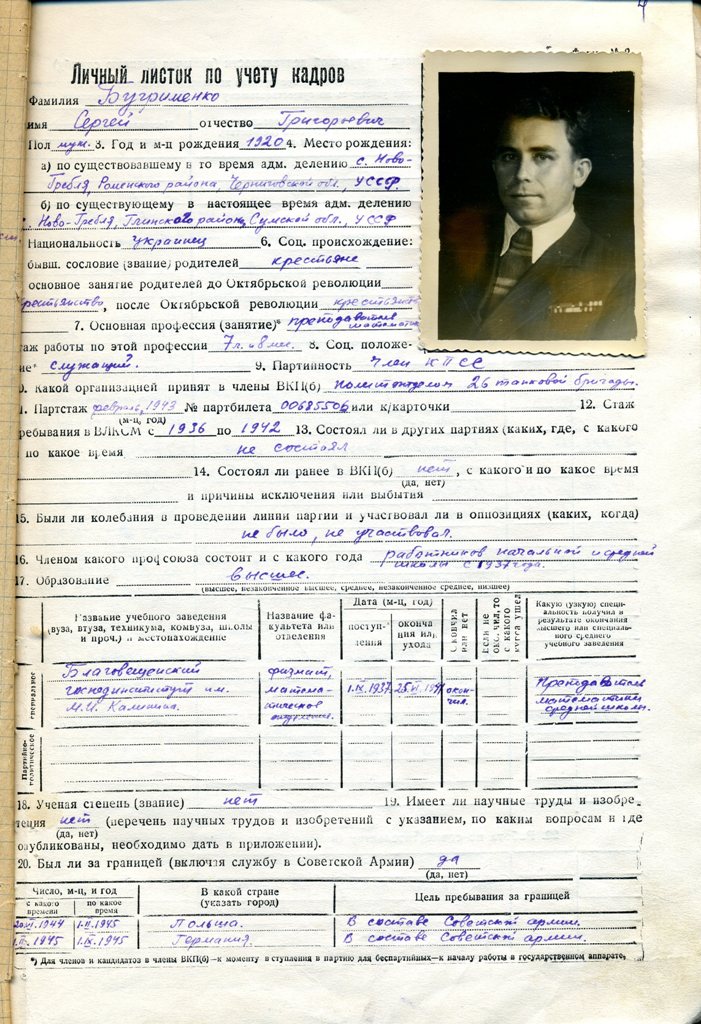 4
Личный листок по учету кадров
Фамилия Бугрименко
имя Сергей отчество Григорьевич
Пол муж. 3. Год и м-ц рождения 1920 4. Место рождения:
а) по существовавшему в то время адм. делению с. Ново-
Гребля, Роменского района, Черниговской обл., УССР.
б) по существующему в настоящее время адм. делению
Ново-Гребля, Глинского район, Сумской обл., УССР
Национальность украинец 6. Соц. происхождение:
бывш. сословие (звание) родителей крестьяне
основное занятие родителей до Октябрьской революции
крестьянство, после Октябрьской революции крестьянство
7. Основная профессия (занятие)* преподаватель
математики
таж работы по этой профессии 7 л. и 8 мес. 8. Соц. положе-
ие* служащий. 9. Партийность Член КПСС
0. Какой организацией принят в члены ВКП(б) политотделом 26 танковой бригады.
1. Партстаж февраль, 1943 № партбилета 00685506 или к/карточки 12. Стаж
(м-ц, год)
ребывания в ВЛКСМ с 1936 по 1942 13. Состоял ли в других партиях (каких, где, с какого
по какое время не состоял
14. Состоял ли ранее в ВКП(б) нет, с какого и по какое время
(да, нет)
и причины исключения или выбытия
15. Были ли колебания в проведении линии партии и участвовал ли в оппозициях (каких, когда)
не было, не участвовал.
16. Членом какого профсоюза состоит и с какого года работников начальной и средней
школы с 1937 года.
17. Образование высшее.
(высшее, незаконченное высшее, среднее, незаконченное среднее, низшее)
Название учебного заведения (вуза, втуза, техникума, комвуза, школы и проч.) и местонахождение
Название факультета или отделения
Дата (м-ц, год)
поступления
окончания или ухода
Окончил или нет
Если не окончил, то с какого курса ушел
Какую (узкую) специальность получил в результате окончания высшего или специального среднего учебного заведения
специальное
Благовещенский
госпединститут им.
М.И. Калинина.
физмат,
матема-
тическое
отделение.
1.IX.1937
25.VI.1941
окон-
чил.
Преподаватель
математики
средней школы.
Партийно-политическое
18. Ученая степень (звание) нет 19. Имеет ли научные труды и изобре-
тения нет (перечень научных трудов и изобретений с указанием, по каким вопросам и где
(да, нет)
опубликованы, необходимо дать в приложении).
20. Был ли за границей (включая службу в Советской Армии) да
(да, нет)
Число, м-ц, и год
с какого времени
по какое время
В какой стране (указать город)
Цель пребывания за границей
1944 1.II.1945 Польша. В составе Советской армии.
1945 1.IX.1945 Германия. В составе Советской армии.
*) Для членов и кандидатов в члены ВКП(б)—к моменту вступления в партию для беспартийных—к началу работы в государственном аппарате,